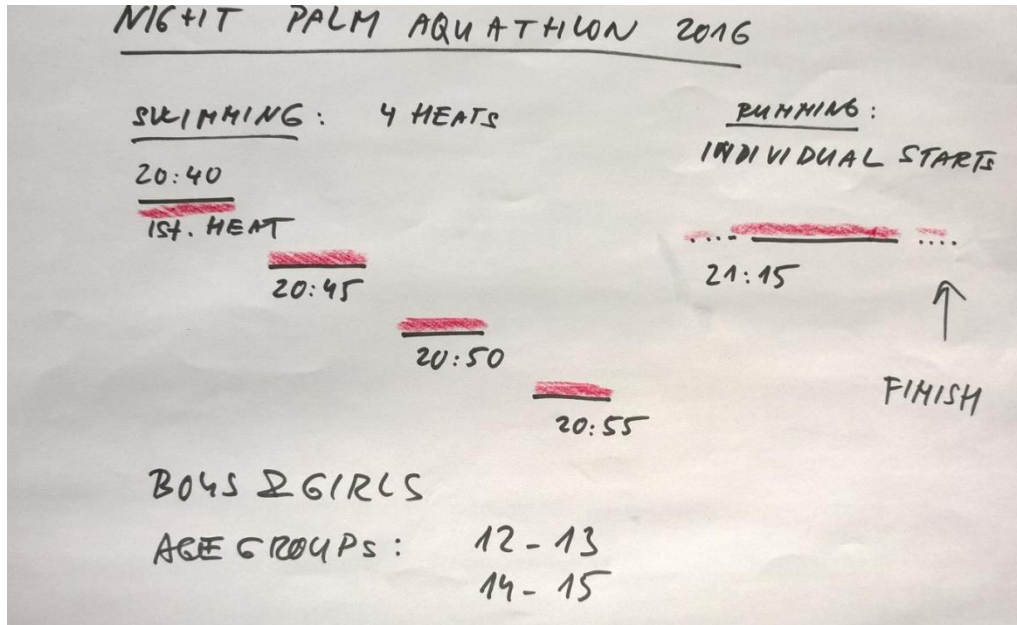 NIGHT PALM AQUATHLON 2016
SWIMMING: 4 HEATS
20:40
1st. HEAT
20:45
20:50
20:55
RUNNING:
INDIVIDUAL STARTS
21:15
FINISH
BOYS & GIRLS
AGE GROUPS: 12-13
14-15